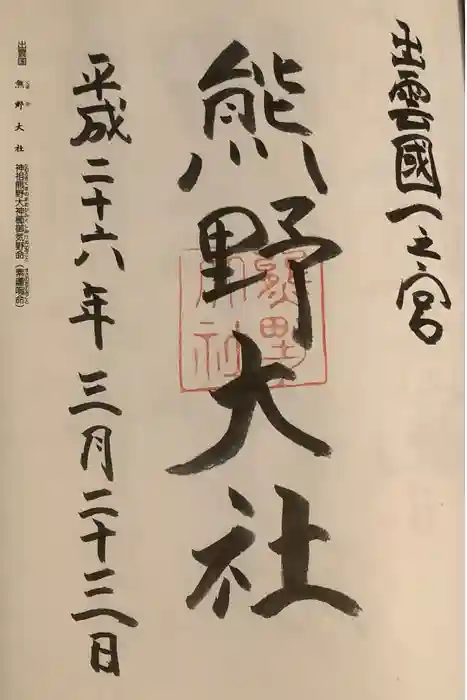 出雲國一之宮
熊野大社
熊野大社
平成二十六年三月二十三日
出雲国 熊野大社 神祖熊野大神櫛御気野命（素戔嗚命）